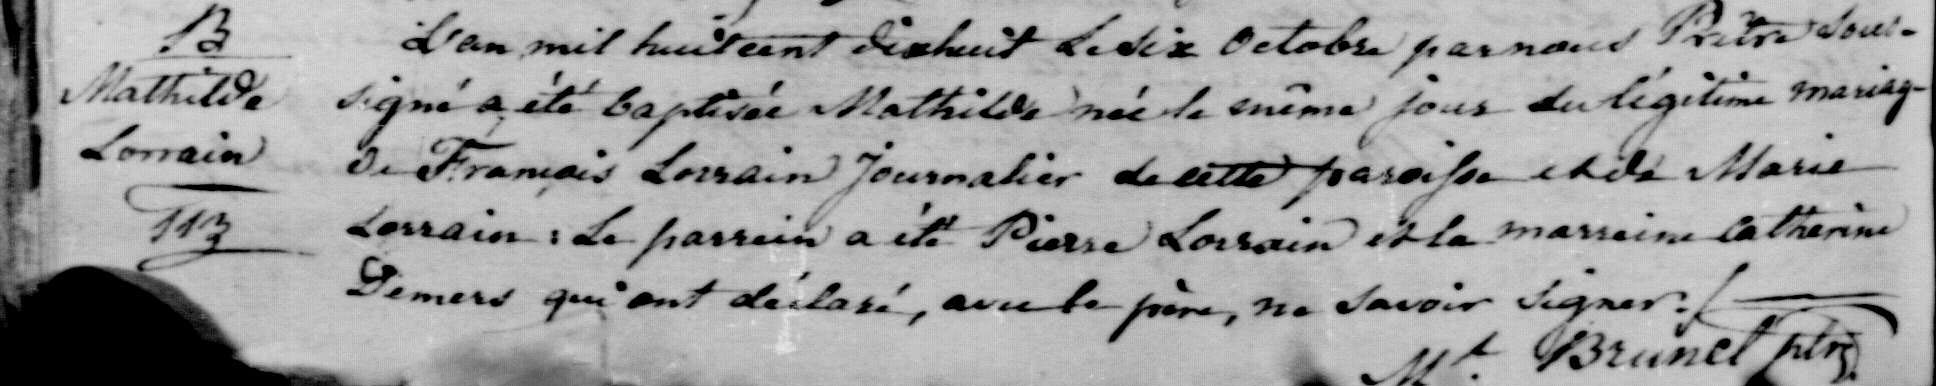 B
Mathilde
Lorrain
113
L'an mil huit cent dixhuit Le six Octobre par nous Prêtre Sous-
signé a été baptisée Mathilde née le même jour du légitime mariag-
de François Lorrain Journalier de cette paroisse et de Marie
Lorrain : Le parrein a été Pierre Lorrain et la marreine Catherine
Demers qui ont déclaré, avec le père, ne savoir signer ./.
Mt. Brunel ptre